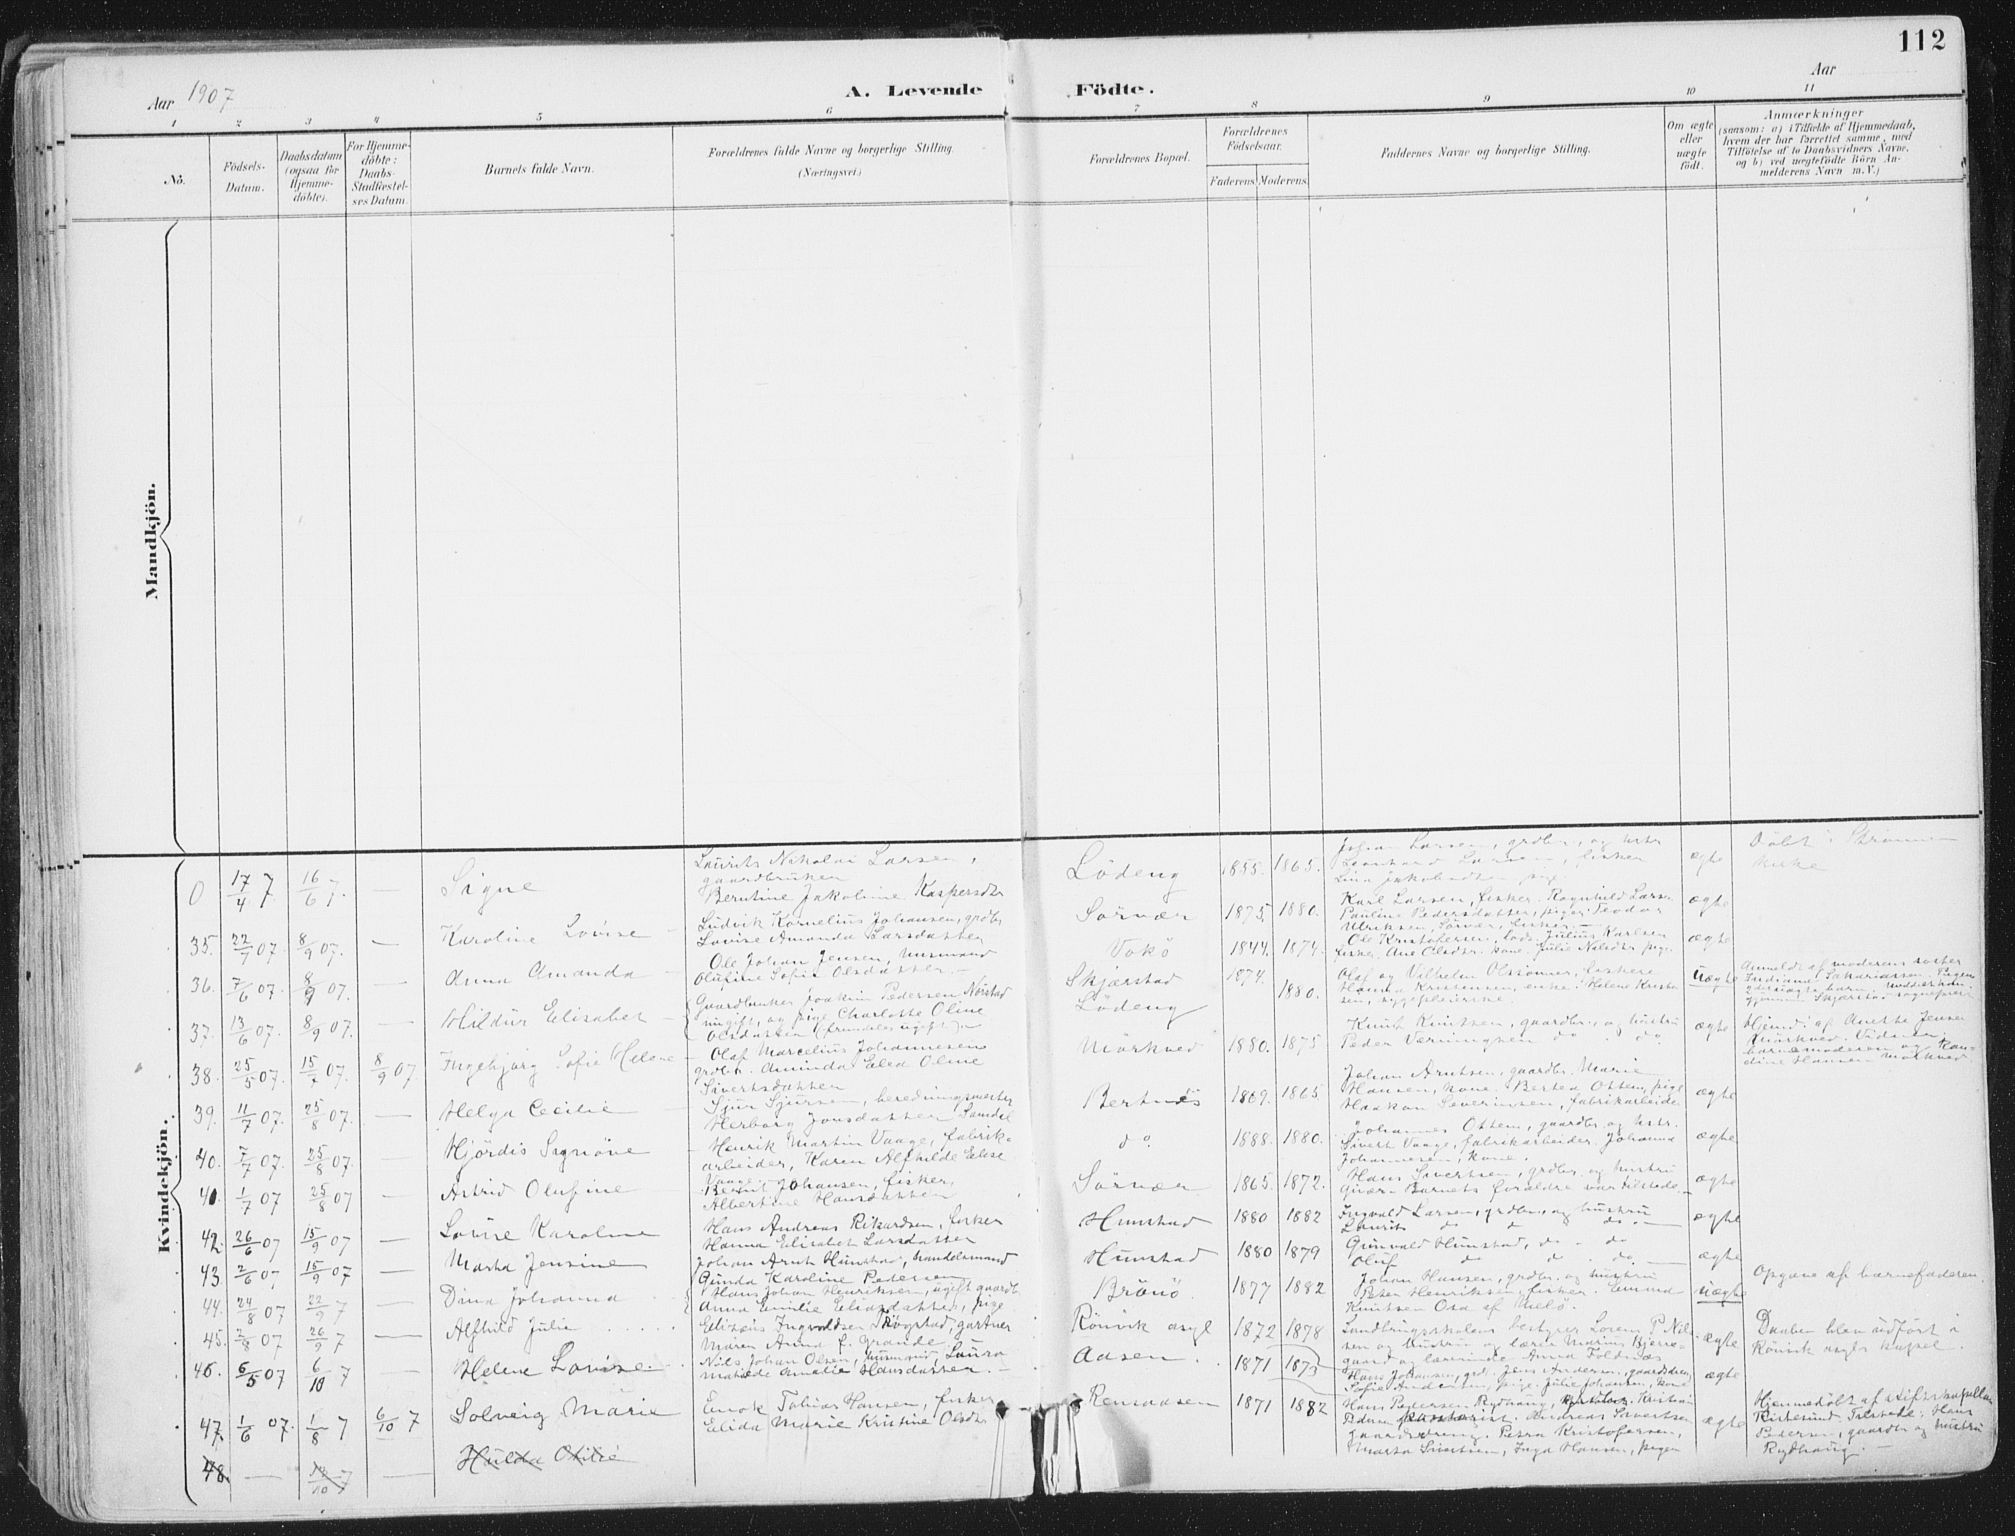 112
Aar 1907
A. Levende Födte.
Aar
1 2 3 4 5 6 7 8 9 10 11
Nö.
Födsels-Datum.
Daabsdatum (ogsaa for Hjemme-döbte).
For Hjemme-döbte: Daabs-Stadfæstel-ses Datum.
Barnets fulde Navn.
Forældrenes fulde Navne og borgerlige Stilling.
(Næringsvei.)
Forældrenes Bopæl.
Forældrenes Födselsaar.
Faderens Moderens.
Faddernes Navne og borgerlige Stilling.
Om ægte eller uægte födt.
Anmærkninger
(saasom: a) i Tilfælde af Hjemmedaab,
hvem der har forrettet samme, med
Tilföielse af to Daabsvidners Navne,
og b) ved uægtefödte Börn An-
melderens Navn m.V.)
Mandkjön.
Kvindekjön.
0 17/4 7. 16/6 7. — Signe
Laurits Nikolai Larsen,
gaardbruker
Berntine Jakobine Kaspersdtr
Lödeng 1855. 1865.
Johan Larsen, grdbr., og hstr
Leonhard Larsen, fisker
ægte
Döbt i Strömmen
kirke
35. 22/7 07. 8/9 07. — Karoline Lovise —
Ludvik Kornelius Johansen, grdbr
Lovise Amanda Larsdatter
Sörvær 1875. 1880.
Karl Larsen, fisker. Ragnhild Larsen
Pauline Pedersdatter, piger. Teodor
Ulriksen, Sörvær, fisker. —
ægte
36. 7/6 07. 8/9 07. — Anna Amanda —
Ole Johan Jensen, husmand
Olufine Sofie Olsdatter. —
Vokö 1844. 1874.
Ole Kristofersen, lods. Julius Karlsen
fisker. Ane Olsdtr. kone. Julie Nilsdtr pige.
ægte
37. 13/6 07. 8/9 07. — Hildur Elisabet —
Gaardbruker Joakim Pedersen Nørstad
ungift, og pige Charlotte Oline
Olsdatter
Skjærstad
Lödeng
1874. 1880.
Olaf og Vilhelm Olssönner, fiskere
Hanna Kristensen, enke. Helene Kristen-
sen, sygepleierske.
uægte
Anmeldt af moderens søster
38. 25/5 07. 15/7 07. 8/9 07. Ingebjørg Sofie Helene —
Olaf Marcelius Johannesen
grdbr. Aminda Elea Oline
Sivertsdatter
Mörkved 1880. 1875
Knut Knutsen, gaardbr., og hustru
Peder do. do.
ægte
Hjemd. af Anette Jensen
Mörkved. Vidner:
barnemoderen og Han-
dine Hansen Mörkved
39. 11/7 07. 25/8 07. — Helga Cecilie —
Sjur Sjursen, beredningsmester
Herborg Jonsdatter Samdal
Bertnes 1869. 1865
Johan Arntsen, gaardbr. Marie
Hansen, kone. Bertea Ottem, pige
Haakon Severinsen, fabrikarbeider
ægte
40. 7/7 07. 25/8 07. — Hjördis Signöve
Henrik Martin Vaage, fabrik-
arbeider, Karen Alfhilde Elise
Vaage
do. 1888. 1880.
Johannes Ottem, gaardbr. og hstr.
Sivert Vaage, fabrikarbeider. Johanna
Johannesen, kone.
ægte
40. 1/7 07. 25/8 07 — Astrid Olufine
Bernt Johansen, fisker,
Albertine Hansdatter
Sörvær 1865. 1872.
Hans Sivertsen, grdbr. og hustru
Barnets forældre var tilstede. —
ægte
42. 26/6 07 15/9 07 — Lovise Karoline
Hans Andreas Rikardsen, fisker
Hanna Elisabet Larsdatter
Hunstad 1880 1882
Ingvald Larsen, grdbr., og hustru
Laurits do do do. —
ægte
43. 2/6 07 15/9 07 — Marta Jensine
Johan Arnt Hunstad, handelsmand
Gunda Karoline Pedersen
Hunstad 1880 1879
Gunvald Hunstad, do. do
Oluf do do do. —
ægte
44. 24/8 07 22/9 7 — Dina Johanna
Hans Johan Henriksen, ugift gaardbr.
Anna Emilie Eliasdatter, pige
Brönö. 1877 1882
Johan Hansen, grdbr. og hustru
Peter Henriksen, fisker.
Knutsen Osa af Melö.
uægte
Opgave af barnefaderen.
45. 2/8 07 26/9 7 — Alfhild Julie
Elizeus Ingvaldsen Skogstad, gartner
Maren Anna f. Grande
Rönvik asyl 1872 1878
Landbrugsskolens bestyrer Loren P. Nil-
sen og hustru og lærer Marius Bjerre-
gaard og lærerinde Anna Foldnæs
ægte
Daaben blev udfört i
Rönvik asyls kapel.
46. 6/5 07 6/10 7 — Helene Lovise.
Nils Johan Olsen, husmand, Laura
Matilde Amalie Hansdatter. —
Aasen. 1871 1873
Hans Johansen, grdbr. Jens Andersen, gaardbr.,
Sofie Andersen, pige. Julie Johansen, kone
ægte
47. 1/6 07. 1/8 7 6/10 7 Solveig Marie
Enok Tobias Hansen, fisker
Elida Marie Kristine Olsdtr
Remaasen 1871 1882
Hans Pedersen Rydhaug, Kristian
Pedersen Andreas Sivertsen
gaarddreng. Petra Kristofersen,
Marta Sivertsen, Inga Hansen, piger
ægte
Hjemmedöbt af stiftskapellan
Rirkesund. Tilstede: Hans
Pedersen, gaardbr og hustru
Rydhaug. —
48. — 13/10 7 — Hulda Otilie